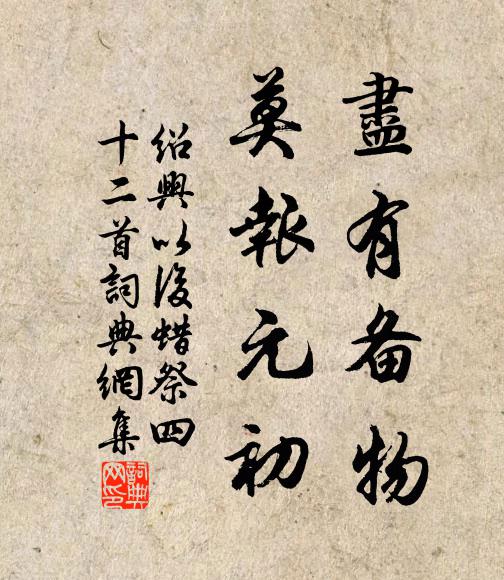 盡有备物
莫報元初
紹興以後蜡祭四
十二首詞典網集
詞典网印